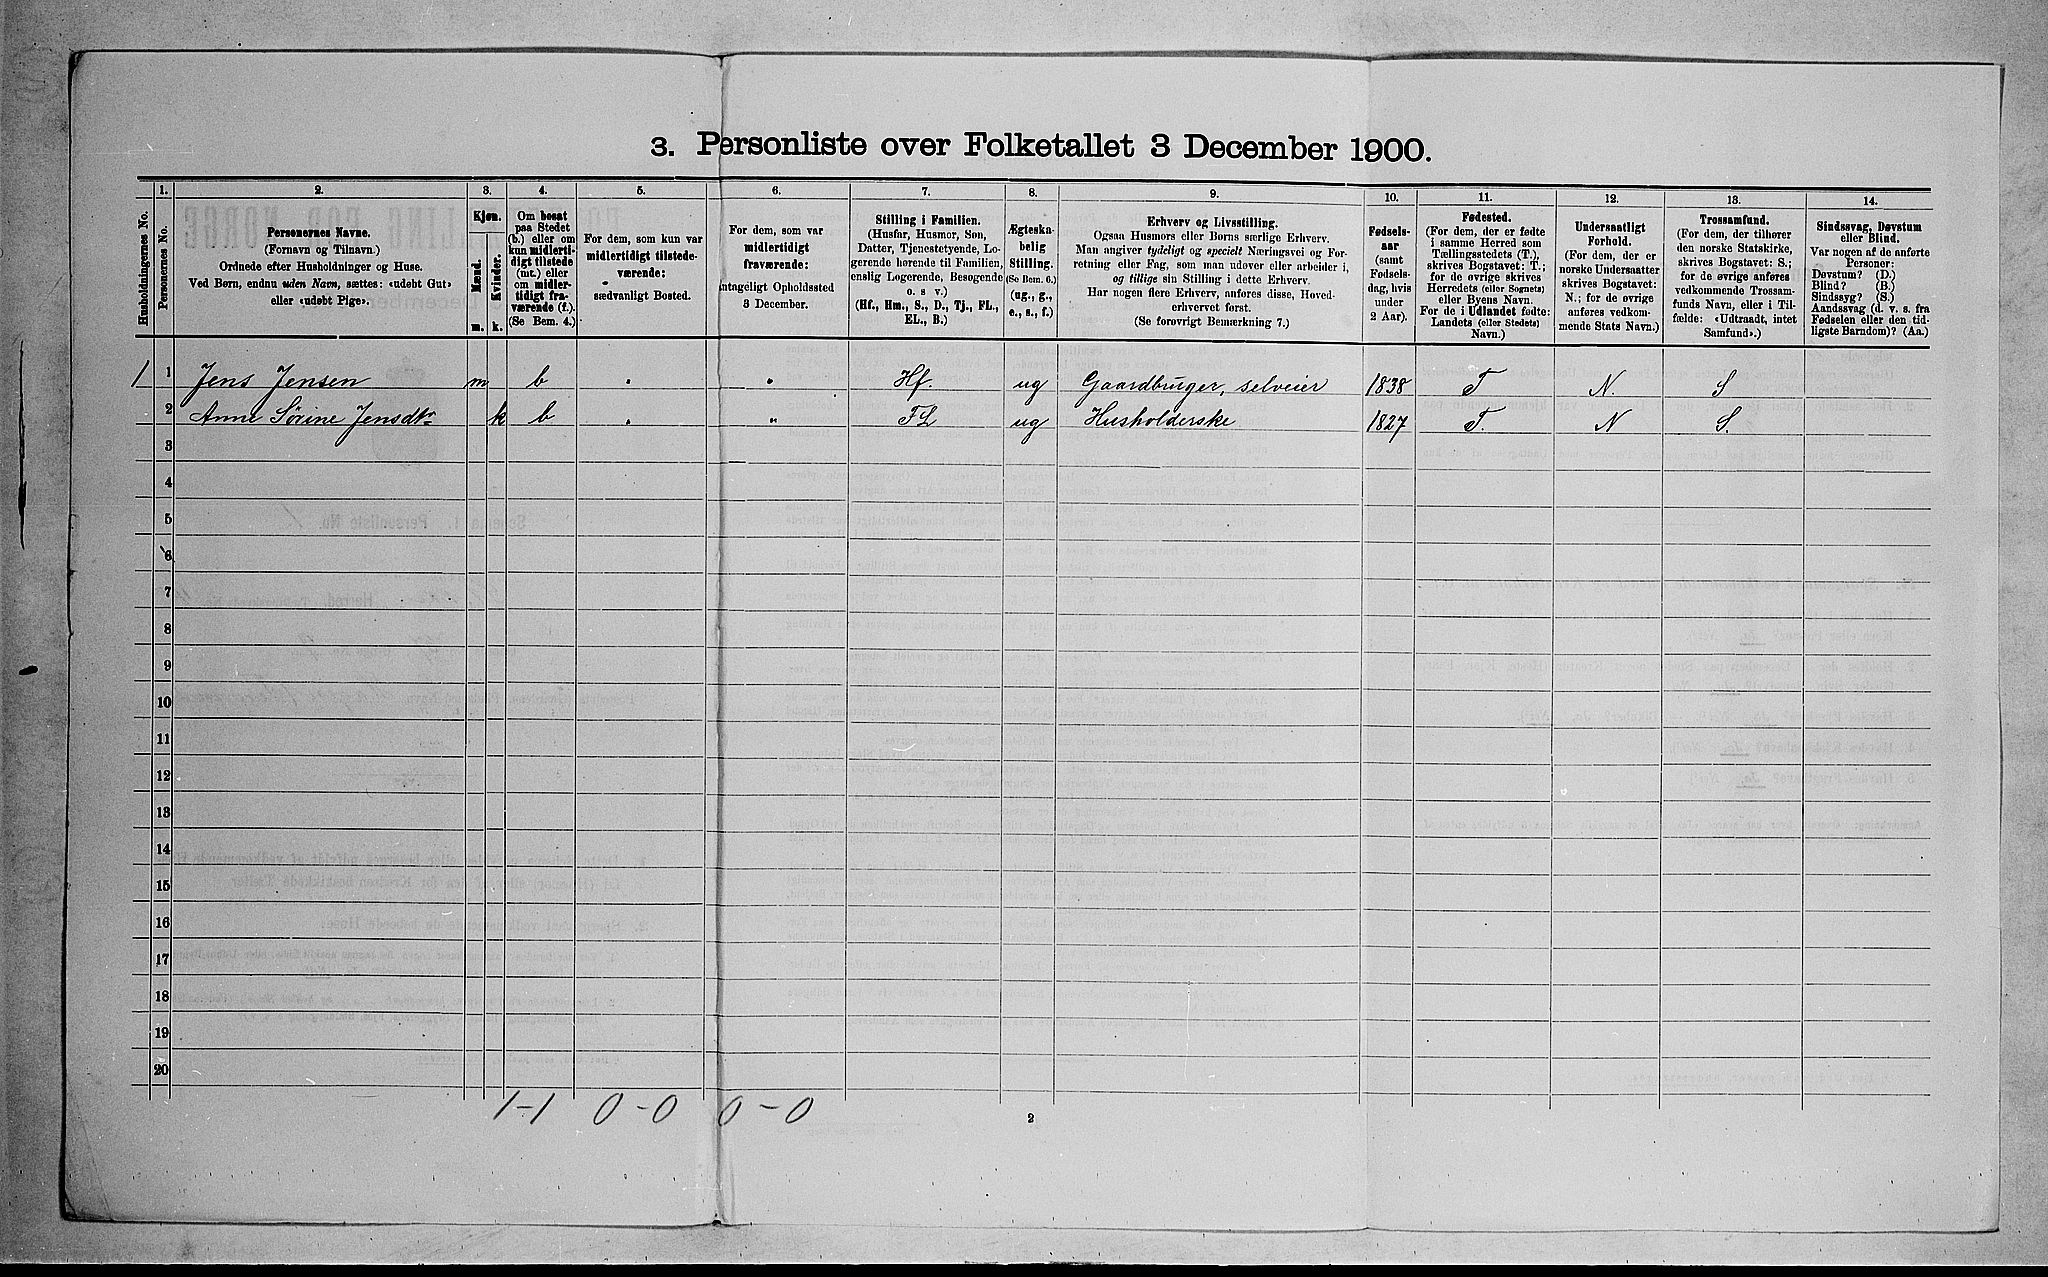 3. Personliste over Folketallet 3 December 1900.
Husholdningernes No.
1.
Personernes No.
2.
Personernes Navne.
(Fornavn og Tilnavn.)
Ordnede efter Husholdninger og Huse.
Ved Børn, endnu uden Navn, sættes: «udøbt Gut»
eller «udøbt Pige».
3.
Kjøn.
Mænd.
Kvinder.
m. k.
4.
Om bosat
paa Stedet
(b.) eller om
kun midlerti-
digt tilstede
(mt.) eller
om midler-
tidigt fra-
værende (f.).
(Se Bem. 4.)
5.
For dem, som kun var
midlertidigt tilstede-
værende:
sædvanligt Bosted.
6.
For dem, som var
midlertidigt
fraværende:
antageligt Opholdssted
3 December.
7.
Stilling i Familien.
(Husfar, Husmor, Søn,
Datter, Tjenestetyende, Lo-
gerende hørende til Familien,
enslig Logerende, Besøgende
o. s v.)
(Hf., Hm., S., D., Tj., FL.,
EL., B.)
8.
Ægteska-
belig
Stilling.
(Se Bem. 6.)
(ug., g.,
e., s., f.)
9.
Erhverv og Livsstilling.
Ogsaa Husmors eller Børns særlige Erhverv.
Man angiver tydeligt og specielt Næringsvei og For-
retning eller Fag, som man udover eller arbeider i,
og tillige sin Stilling i dette Erhverv.
Har nogen flere Erhverv, anføres disse, Hoved-
erhvervet først.
(Se forøvrigt Bemærkning 7.)
10.
Fødsels-
aar
(samt
Fødsels-
dag, hvis
under
2 Aar).
11.
Fødested.
(For dem, der er fødte
i samme Herred som
Tællingsstedets (T.),
skrives Bogstavet: T.;
for de øvrige skrives
Herredets (eller Sognets)
eller Byens Navn.
For de i Udlandet fødte:
Landets (eller Stedets)
Navn.)
12.
Undersaatligt
Forhold.
(For dem, der er
norske Undersaatter
skrives Bogstavet:
N.; for de øvrige
anføres vedkom-
mende Stats Navn.)
13.
Trossamfund.
(For dem, der tilhører
den norske Statskirke,
skrives Bogstavet: S.;
for de øvrige anføres
vedkommende Trossam-
funds Navn, eller i Til-
fælde: «Udtraadt, intet
Samfund».)
14.
Sindssvag, Døvstum
eller Blind.
Var nogen af de anførte
Personer:
Døvstum? (D.)
Blind? (B.)
Sindssyg? (S.)
Aandssvag (d. v. s. fra
Fødselen eller den tid-
ligste Barndom)? (Aa.)
1 1 Jens Jensen m b " " Hf. ug Gaardbruger, selveier 1838 T N. S
2 Anne Sørine Jensdtr k b " " FL ug Husholderske 1827 T. N S.
3
4
5
6
7
8
9
10
11
12
13
14
15
16
17
18
19
20
1-1 0-0 0-0
2